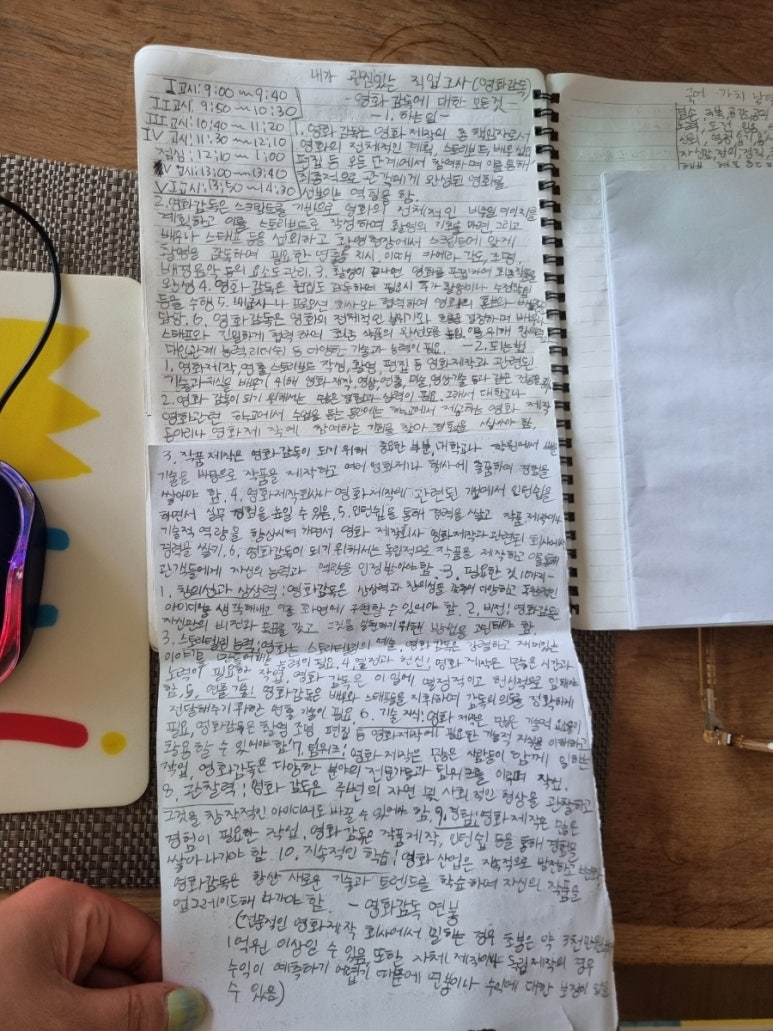 내가 관심있는 직업조사(영화감독)
- 영화 감독에 대한 모든것 -
- 1. 하는일 -
I 교시: 9:00 ~ 9:40
II 교시: 9:50 ~ 10:30
III 교시: 10:40 ~ 11:20
IV 교시: 11:30 ~ 12:10
점심: 12:10 ~ 1:00
V 교시: 13:00 ~ 13:40
VI 교시: 13:50 ~ 14:30
1. 영화 감독은 영화 제작의 총 책임자로서
영화의 전체적인 계획, 스토리보드, 배우
편집 등 모든 단계에서 참여하며 이를 통해
최종적으로 관객에게 완성된 영화를
선보이는 역할을 함.
2. 영화감독은 스크립트를 기반으로 영화의 전체적인 비주얼 이미지를
계획하고 이를 스토리보드로 작성하여 촬영의 기초를 마련 그리고
배우나 스태프 등을 섭외하고 촬영현장에서 스크립트에 맞게
촬영을 감독하며 필요한 연출을 지시, 이때 카메라 각도, 조명,
배경음악 등의 요소도 관리. 3. 촬영이 끝나면 영화를 편집하여 최종작품을
완성 4. 영화감독은 편집도 감독하며 필요시 추가 촬영이나 수정작업
등을 수행 5. 배급사나 프로모션 회사와 협력하여 영화의 홍보와 배급을
담당. 6. 영화감독은 영화의 전체적인 분위기와 흐름을 결정하며 배우,
스태프와 긴밀하게 협력하여 최종 작품의 완성도를 높임. 이를 위해
대인관계 능력 리더쉽 등 다양한 기술과 능력이 필요. - 2. 되는법
1. 영화제작, 연출 스토리보드 작성, 촬영, 편집 등 영화제작과 관련된
기술과 지식을 배우기 위해 영화제작, 영상연출, 미술, 영상기술 등과 같은 전공
2. 영화 감독이 되기 위해서는 많은 경험과 실력이 필요. 그래서 대학교나
영화관련 학교에서 수업을 듣는 동안에는 학교에서 제공하는 영화 제작
동아리나 영화제작에 참여하는 기회를 찾아 경험을 쌓아야 함.
3. 작품 제작은 영화감독이 되기 위해 중요한 부분, 대학교나 학원에서 배운
기술을 바탕으로 작품을 제작하고 여러 영화제나 행사에 출품하여 경험을
쌓아야 함. 4. 영화제작회사나 영화제작에 관련된 기업에서 인턴쉽을
하면서 실무 경험을 높일 수 있음. 5. 인턴쉽을 통해 경력을 쌓고 작품 제작이나
기술적 역량을 향상시켜 가면서 영화 제작회사 영화제작과 관련된 회사에서
경력을 쌓기. 6. 영화감독이 되기 위해서는 독립적으로 작품을 제작하고 이를 통해
관객들에게 자신의 능력과 역량을 인정받아야함. - 3. 필요한 것 10가지 -
1. 창의성과 상상력: 영화감독은 상상력과 창의성을 갖추어 다양하고 독창적인
아이디어를 생각해내고 이를 화면에 구현할 수 있어야 함. 2. 비전: 영화감독은
자신만의 비전과 목표를 갖고 그것을 실현하기 위한 방법을 고민해야 함.
3. 스토리텔링 능력: 영화는 스토리텔링의 예술. 영화감독은 강렬하고 재미있는
이야기를 만들어내는 능력이 필요. 4. 열정과 헌신: 영화 제작은 많은 시간과
노력이 필요한 작업. 영화 감독은 이 일에 열정적이고 헌신적으로 임해야
함. 5. 연출 기술: 영화감독은 배우와 스태프들을 지휘하여 감독의 의도를 정확하게
전달해주기 위한 연출 기술이 필요 6. 기술 지식: 영화 제작은 많은 기술적 요소들이
필요, 영화감독은 촬영 조명 편집 등 영화제작에 필요한 기술적 지식을 이해하고
활용할 수 있어야 함 7. 팀워크: 영화 제작은 많은 사람들이 함께 일하는
작업, 영화감독은 다양한 분야의 전문가들과 팀워크를 이루며 작업.
8. 관찰력: 영화 감독은 주변의 자연 및 사회적인 현상을 관찰하고
그것을 창작적인 아이디어로 바꿀 수 있어야 함. 9. 경험: 영화제작은 많은
경험이 필요한 작업. 영화 감독은 작품제작, 인턴쉽 등을 통해 경험을
쌓아 나가야 함. 10. 지속적인 학습: 영화 산업은 지속적으로 발전하고
영화감독은 항상 새로운 기술과 트렌드를 학습하여 자신의 작품을
업그레이드해 나가야 함. - 영화감독 연봉
(전문적인 영화제작 회사에서 일하는 경우 초봉은 약 3천만원
1억원 이상일 수 있음. 또한 자체 제작이나 독립제작의 경우
수익이 예측하기 어렵기 때문에 연봉이나 수익에 대한 보장이
수 있음)
국어 가치